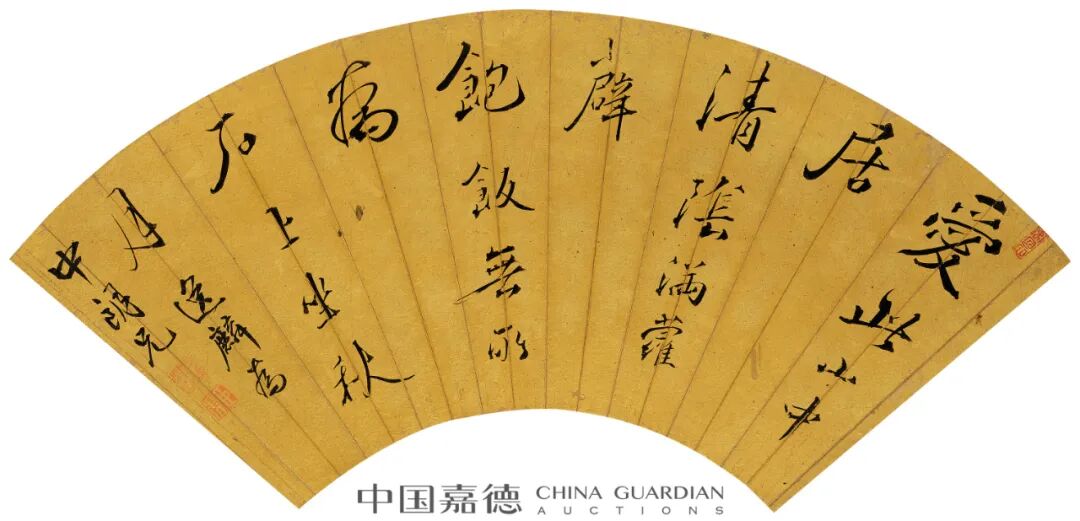 愛此山中
居
清陰滿蘿
薜
飽飯無所
為
石上坐秋
月
麟為
中兄
中国嘉德 CHINA GUARDIAN
AUCTIONS